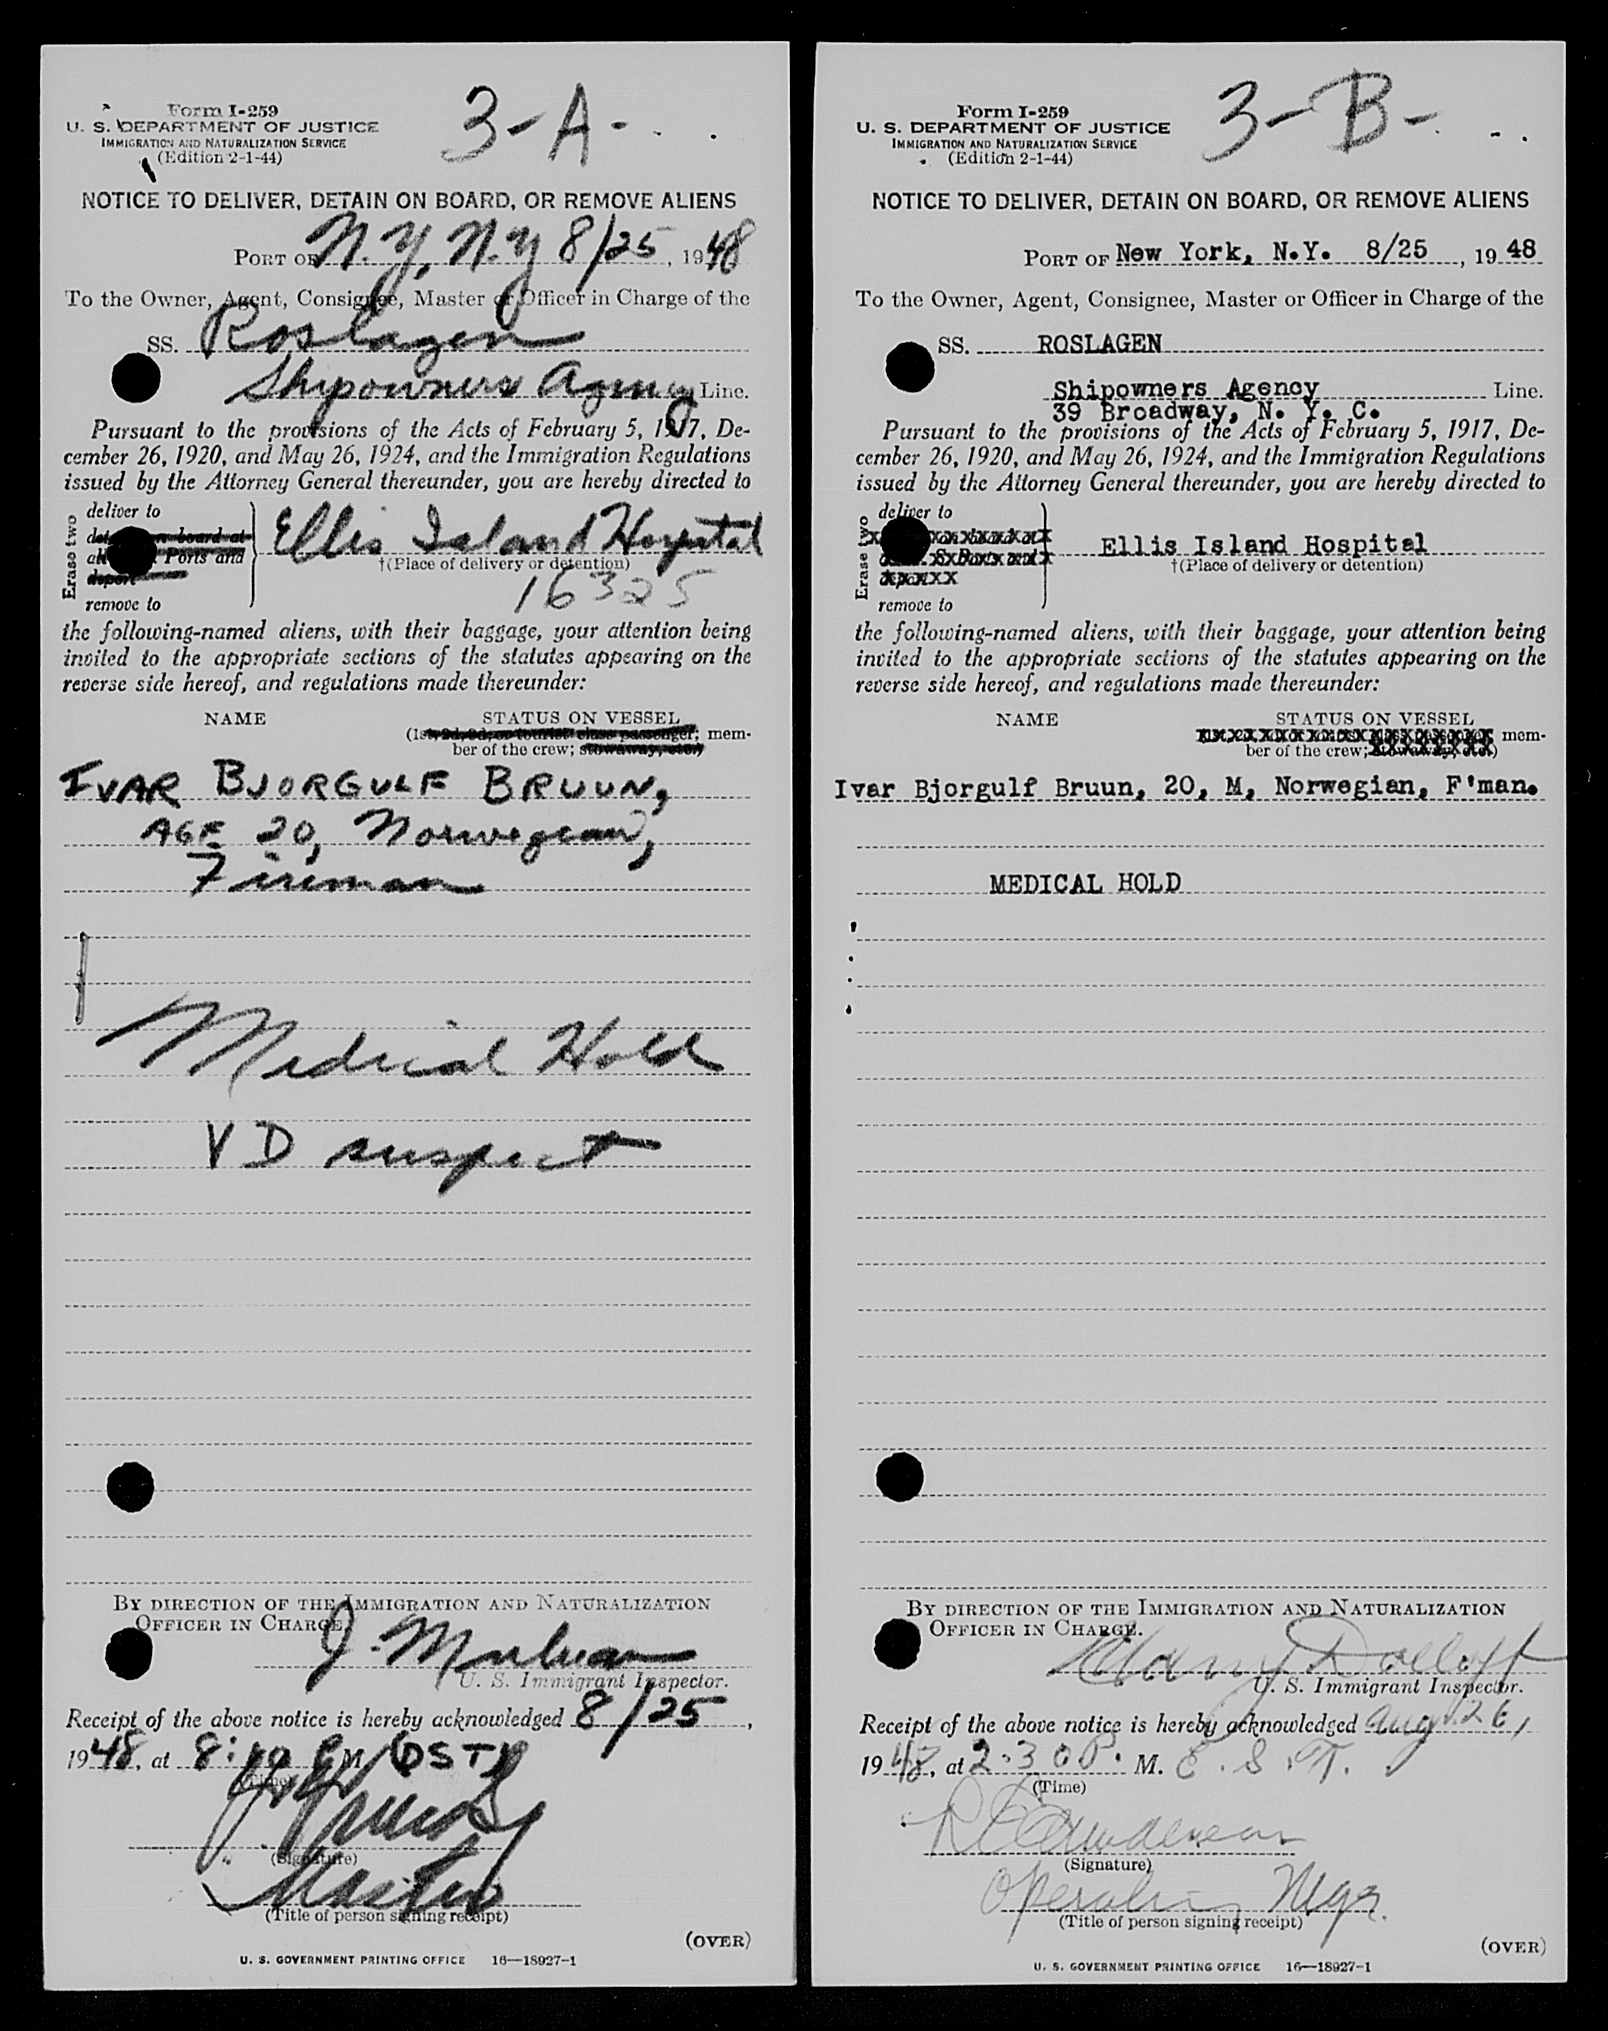 Form I-259
U. S. DEPARTMENT OF JUSTICE
IMMIGRATION AND NATURALIZATION SERVICE
(Edition 2-1-44)
3-A-
NOTICE TO DELIVER, DETAIN ON BOARD, OR REMOVE ALIENS
PORT OF N.Y, N.Y 8/25, 1948
To the Owner, Agent, Consignee, Master or Officer in Charge of the
SS. Roslagen
Shipowners Agency Line.
Pursuant to the provisions of the Acts of February 5, 1917, De-
cember 26, 1920, and May 26, 1924, and the Immigration Regulations
issued by the Attorney General thereunder, you are hereby directed to
Erase two
deliver to
on board at
Ports and
deport
remove to
Ellis Island Hospital
†(Place of delivery or detention)
16325
the following-named aliens, with their baggage, your attention being
invited to the appropriate sections of the statutes appearing on the
reverse side hereof, and regulations made thereunder:
NAME STATUS ON VESSEL
(1st, 2d, 3d, or tourist class passenger; mem-
ber of the crew; stowaway, etc.)
IVAR BJORGULF BRUUN,
AGE 20, Norwegian,
Fireman
Medical Hold
VD suspect
BY DIRECTION OF THE IMMIGRATION AND NATURALIZATION
OFFICER IN CHARGE.
J.
U. S. Immigrant Inspector.
Receipt of the above notice is hereby acknowledged 8/25,
1948, at 8:10 P M. (DST)
(Time)
(Signature)
Master
(Title of person signing receipt)
(OVER)
U. S. GOVERNMENT PRINTING OFFICE 16—18927-1
Form I-259
U. S. DEPARTMENT OF JUSTICE
IMMIGRATION AND NATURALIZATION SERVICE
(Edition 2-1-44)
3-B-
NOTICE TO DELIVER, DETAIN ON BOARD, OR REMOVE ALIENS
PORT OF New York, N.Y. 8/25, 1948
To the Owner, Agent, Consignee, Master or Officer in Charge of the
SS. ROSLAGEN
Shipowners Agency Line.
39 Broadway, N. Y. C.
Pursuant to the provisions of the Acts of February 5, 1917, De-
cember 26, 1920, and May 26, 1924, and the Immigration Regulations
issued by the Attorney General thereunder, you are hereby directed to
Erase two
deliver to
remove to
Ellis Island Hospital
†(Place of delivery or detention)
the following-named aliens, with their baggage, your attention being
invited to the appropriate sections of the statutes appearing on the
reverse side hereof, and regulations made thereunder:
NAME STATUS ON VESSEL
mem-
ber of the crew;
Ivar Bjorgulf Bruun, 20, M, Norwegian, F'man.
MEDICAL HOLD
BY DIRECTION OF THE IMMIGRATION AND NATURALIZATION
OFFICER IN CHARGE.
U. S. Immigrant Inspector.
Receipt of the above notice is hereby acknowledged Aug 26,
1948, at 2:30 P. M. E.S.T.
(Time)
(Signature)
Operating Mgr.
(Title of person signing receipt)
(OVER)
U. S. GOVERNMENT PRINTING OFFICE 16—18927-1